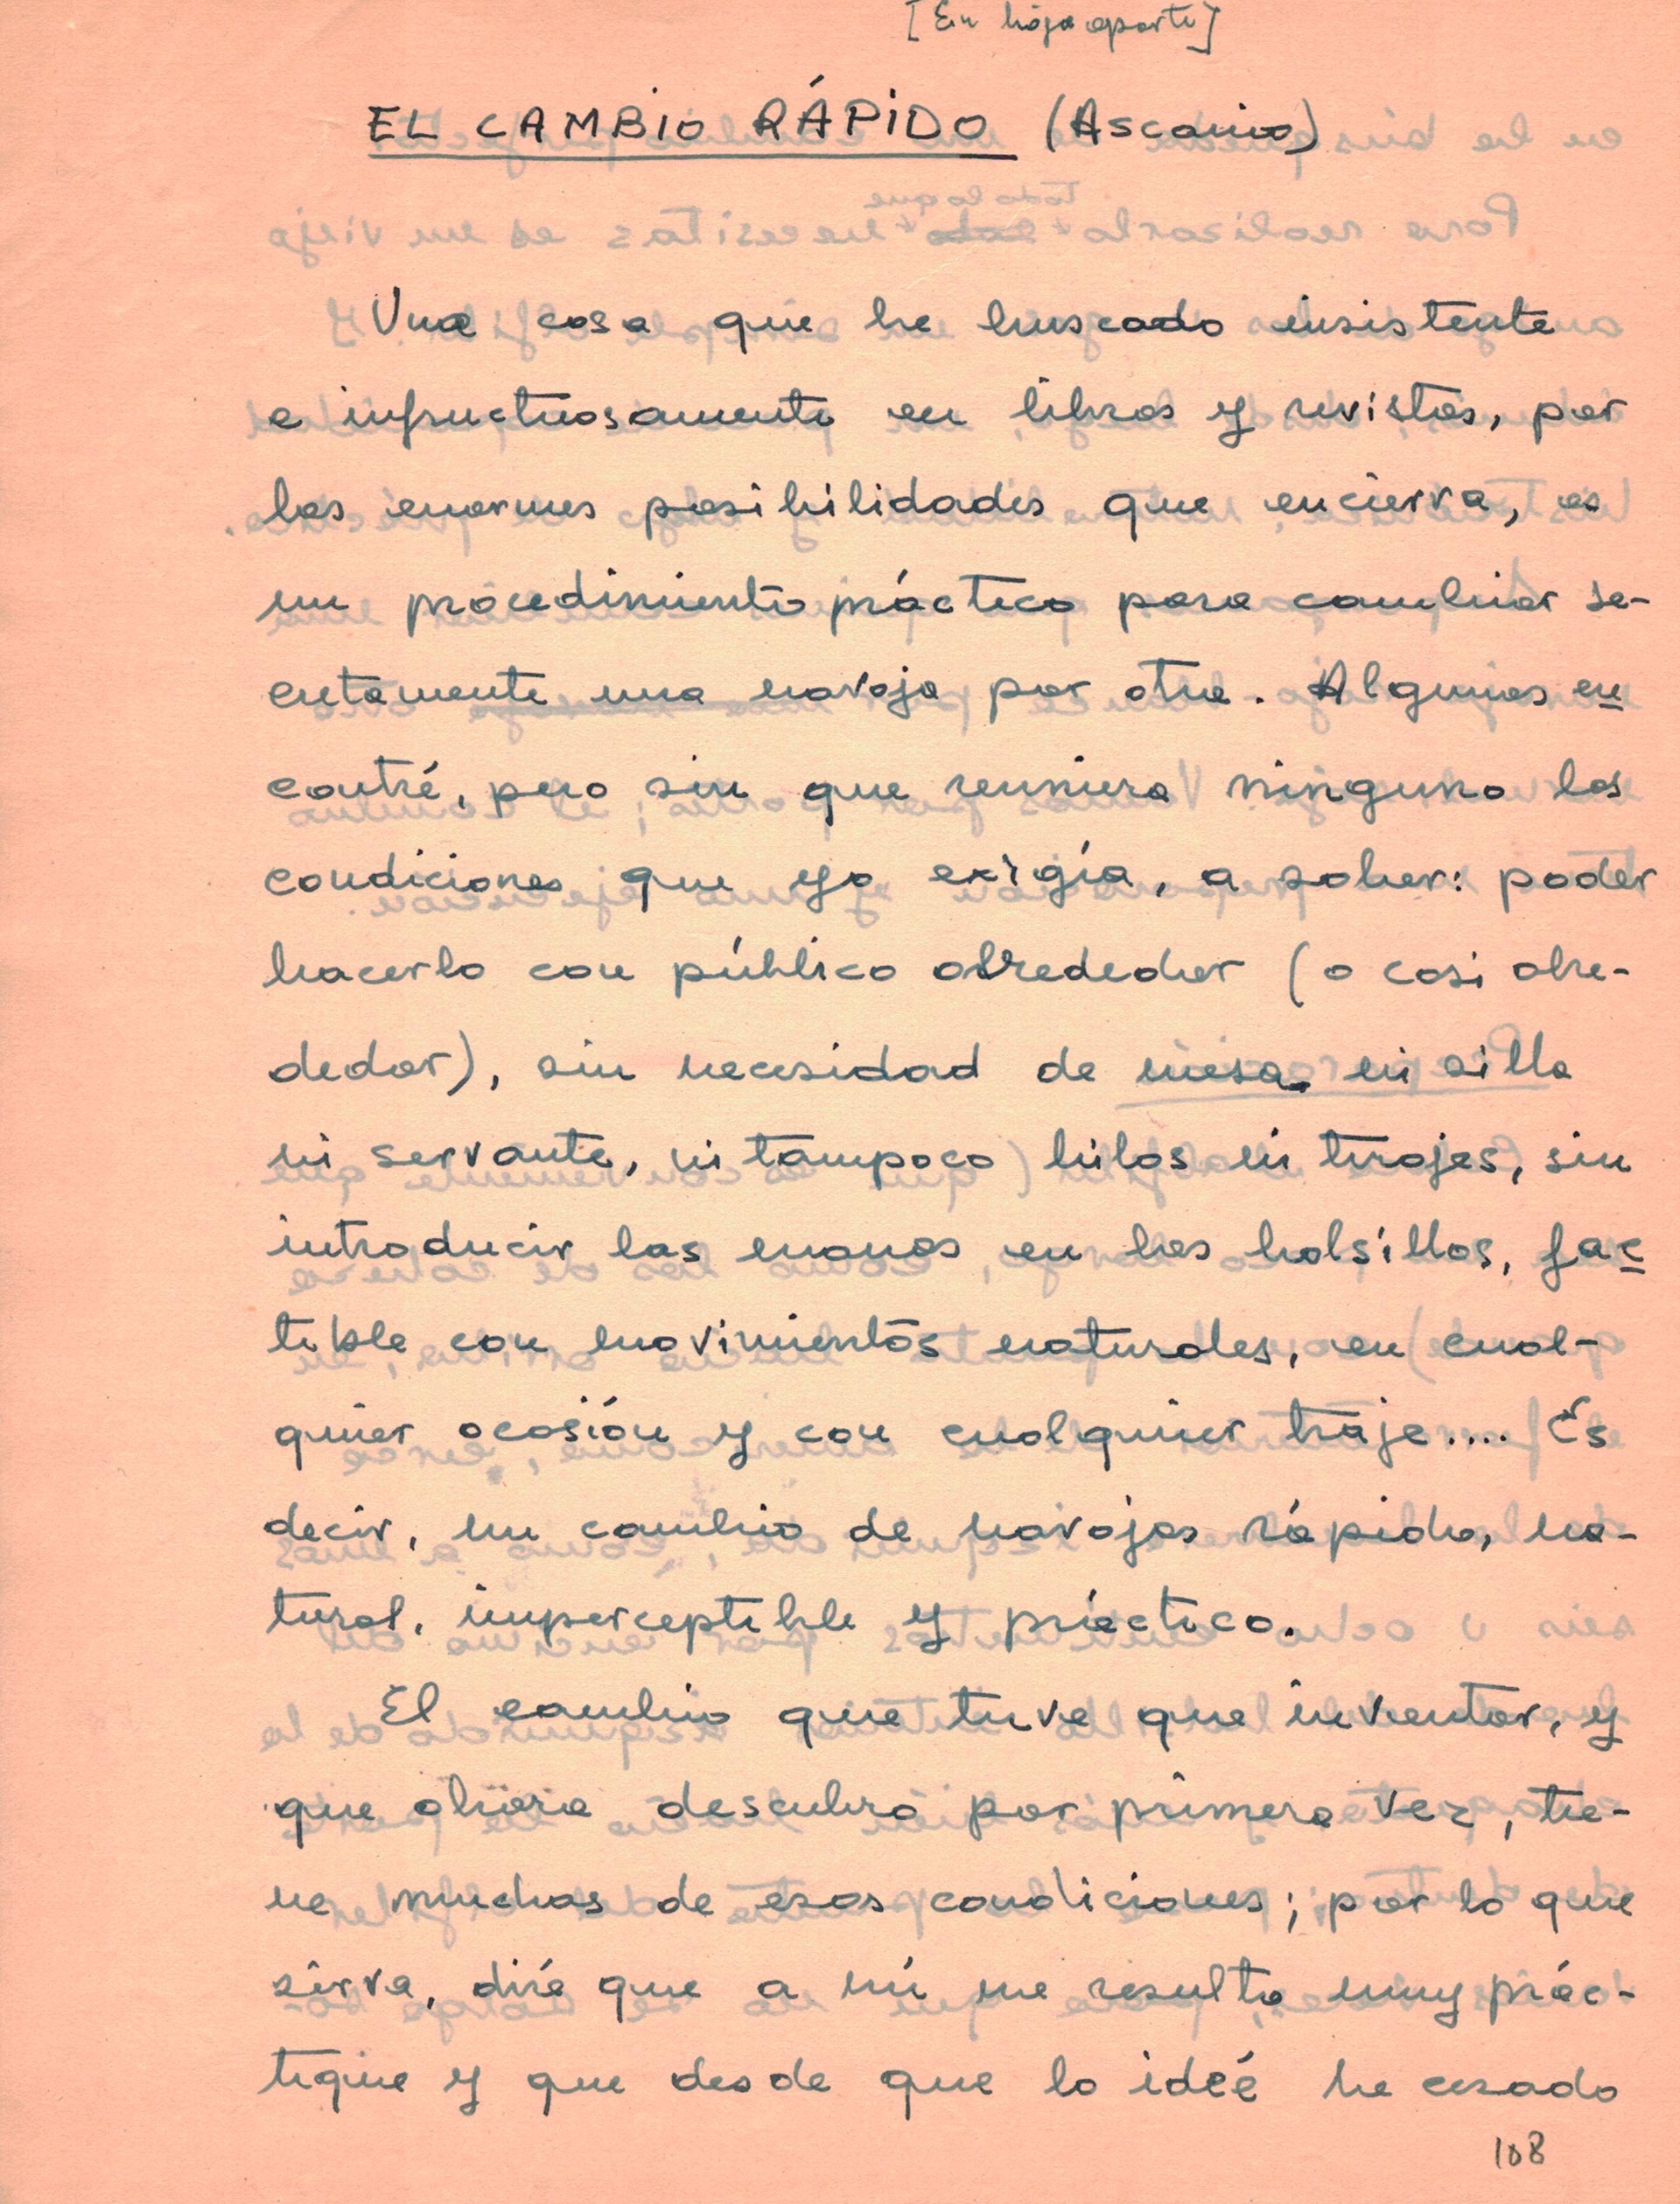 [En hoja aparte]
EL CAMBIO RÁPIDO (Ascanio)
Una cosa que he buscado insistente
e infructuosamente en libros y revistas, por
las enormes posibilidades que encierra, es
un procedimiento práctico para cambiar se-
cretamente una navaja por otra. Algunos en
contré, pero sin que reuniera ninguno las
condiciones que yo exigía, a saber: poder
hacerlo con público alrededor (o casi alre-
dedor), sin necesidad de mesa ni silla
ni servante, ni tampoco hilos ni tirajes, sin
introducir las manos en los bolsillos, fac
tible con movimientos naturales, en cual-
quier ocasión y con cualquier traje.... Es
decir, un cambio de navajas rápido, na-
tural, imperceptible y práctico.
El cambio que tuve que inventar, y
que ahora descubro por primera vez, tie-
ne muchas de esas condiciones; por lo que
sirva, diré que a mí me resulta muy prác-
tique y que desde que lo ideé he cesado
108